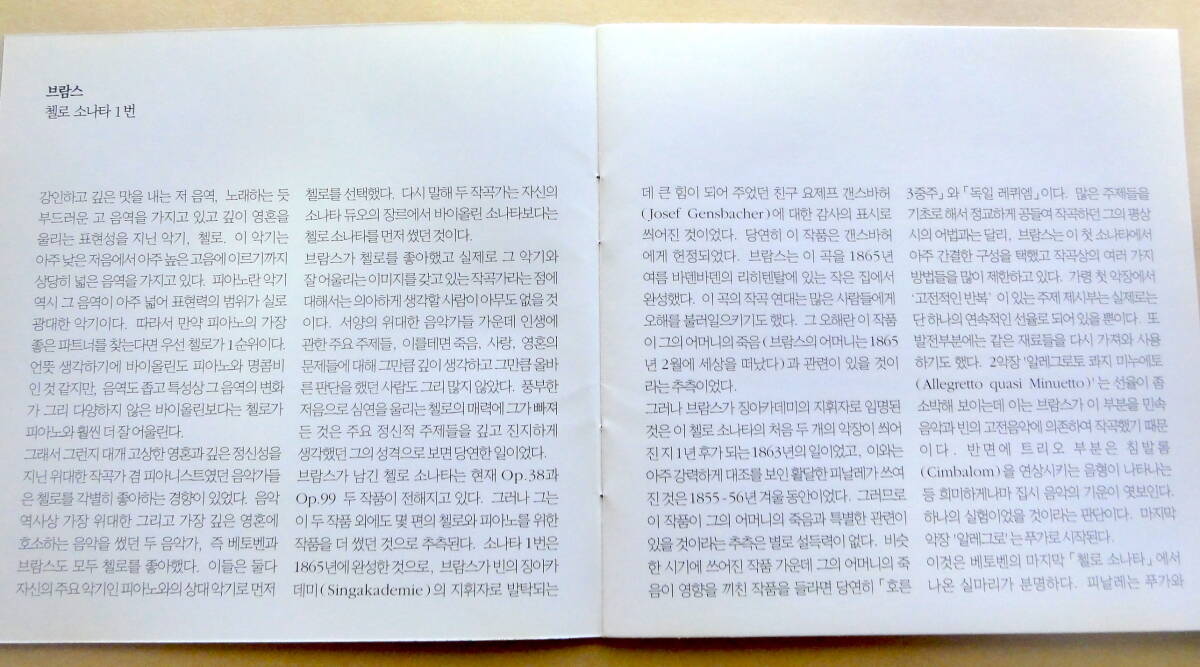 브람스
첼로 소나타 1번
강인하고 깊은 맛을 내는 저 음역, 노래하는 듯
부드러운 고 음역을 가지고 있고 깊이 영혼을
울리는 표현성을 지닌 악기, 첼로. 이 악기는
아주 낮은 저음에서 아주 높은 고음에 이르기까지
상당히 넓은 음역을 가지고 있다. 피아노란 악기
역시 그 음역이 아주 넓어 표현력의 범위가 실로
광대한 악기이다. 따라서 만약 피아노의 가장
좋은 파트너를 찾는다면 우선 첼로가 1순위이다.
언뜻 생각하기에 바이올린도 피아노와 명콤비
인 것 같지만, 음역도 좁고 특성상 그 음역의 변화
가 그리 다양하지 않은 바이올린보다는 첼로가
피아노와 훨씬 더 잘 어울린다.
그래서 그런지 대개 고상한 영혼과 깊은 정신성을
지닌 위대한 작곡가 겸 피아니스트였던 음악가들
은 첼로를 각별히 좋아하는 경향이 있었다. 음악
역사상 가장 위대한 그리고 가장 깊은 영혼에
호소하는 음악을 썼던 두 음악가, 즉 베토벤과
브람스도 모두 첼로를 좋아했다. 이들은 둘다
자신의 주요 악기인 피아노와의 상대 악기로 먼저
첼로를 선택했다. 다시 말해 두 작곡가는 자신의
소나타 듀오의 장르에서 바이올린 소나타보다는
첼로 소나타를 먼저 썼던 것이다.
브람스가 첼로를 좋아했고 실제로 그 악기와
잘 어울리는 이미지를 갖고 있는 작곡가라는 점에
대해서는 의아하게 생각할 사람이 아무도 없을 것
이다. 서양의 위대한 음악가들 가운데 인생에
관한 주요 주제들, 이를테면 죽음, 사랑, 영혼의
문제들에 대해 그만큼 깊이 생각하고 그만큼 올바
른 판단을 했던 사람도 그리 많지 않았다. 풍부한
저음으로 심연을 울리는 첼로의 매력에 그가 빠져
든 것은 주요 정신적 주제들을 깊고 진지하게
생각했던 그의 성격으로 보면 당연한 일이었다.
브람스가 남긴 첼로 소나타는 현재 Op.38과
Op.99 두 작품이 전해지고 있다. 그러나 그는
이 두 작품 외에도 몇 편의 첼로와 피아노를 위한
작품을 더 썼던 것으로 추측된다. 소나타 1번은
1865년에 완성한 것으로, 브람스가 빈의 징아카
데미(Singakademie)의 지휘자로 발탁되는
데 큰 힘이 되어 주었던 친구 요제프 갠스바허
(Josef Gensbacher)에 대한 감사의 표시로
씌어진 것이었다. 당연히 이 작품은 갠스바허
에게 헌정되었다. 브람스는 이 곡을 1865년
여름 바덴바덴의 리히텐탈에 있는 작은 집에서
완성했다. 이 곡의 작곡 연대는 많은 사람들에게
오해를 불러일으키기도 했다. 그 오해란 이 작품
이 그의 어머니의 죽음(브람스의 어머니는 1865
년 2월에 세상을 떠났다)과 관련이 있을 것이
라는 추측이었다.
그러나 브람스가 징아카데미의 지휘자로 임명된
것은 이 첼로 소나타의 처음 두 개의 악장이 씌어
진 지 1년 후가 되는 1863년의 일이었고, 이와는
아주 강력하게 대조를 보인 활달한 피날레가 쓰여
진 것은 1855-56년 겨울 동안이었다. 그러므로
이 작품이 그의 어머니의 죽음과 특별한 관련이
있을 것이라는 추측은 별로 설득력이 없다. 비슷
한 시기에 쓰어진 작품 가운데 그의 어머니의 죽
음이 영향을 끼친 작품을 들라면 당연히 「호른
3중주」와 「독일 레퀴엠」이다. 많은 주제들을
기초로 해서 정교하게 공들여 작곡하던 그의 평상
시의 어법과는 달리, 브람스는 이 첫 소나타에서
아주 간결한 구성을 택했고 작곡상의 여러 가지
방법들을 많이 제한하고 있다. 가령 첫 악장에서
'고전적인 반복' 이 있는 주제 제시부는 실제로는
단 하나의 연속적인 선율로 되어 있을 뿐이다. 또
발전부분에는 같은 재료들을 다시 가져와 사용
하기도 했다. 2악장 '알레그로토 콰지 미누에토
(Allegretto quasi Minuetto)'는 선율이 좀
소박해 보이는데 이는 브람스가 이 부분을 민속
음악과 빈의 고전음악에 의존하여 작곡했기 때문
이다. 반면에 트리오 부분은 침발롬
(Cimbalom)을 연상시키는 음형이 나타나는
등 희미하게나마 집시 음악의 기운이 엿보인다.
하나의 실험이었을 것이라는 판단이다. 마지막
악장 '알레그로'는 푸가로 시작된다.
이것은 베토벤의 마지막 「첼로 소나타」에서
나온 실마리가 분명하다. 피날레는 푸가와